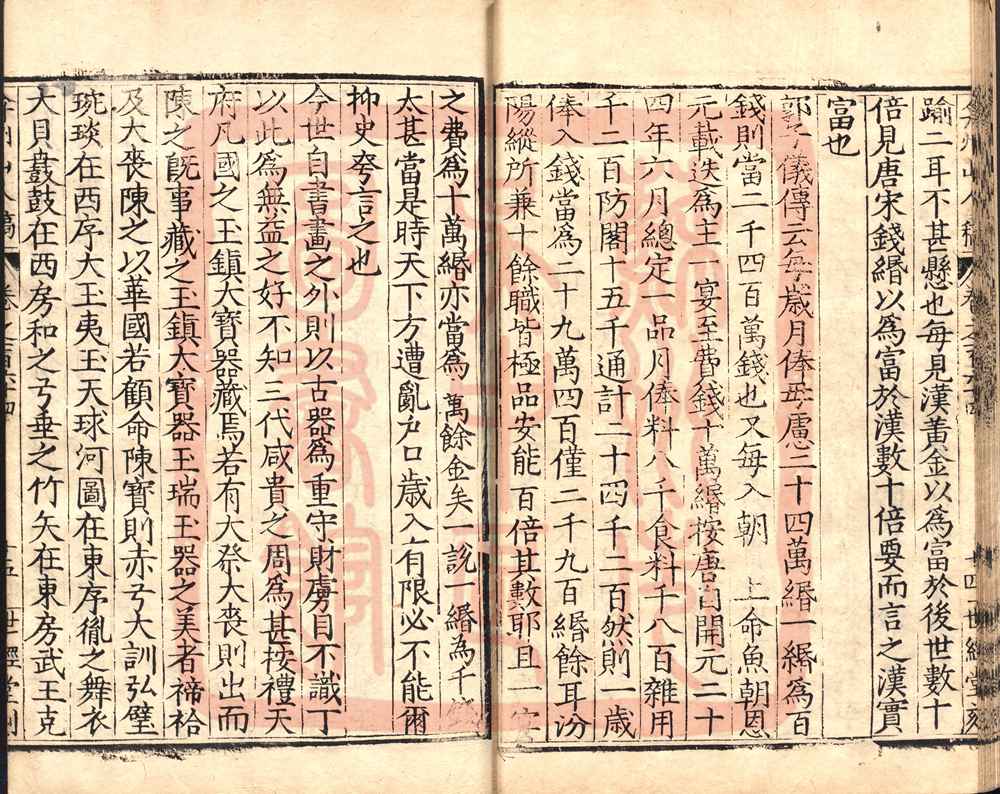 弇州山人稿 卷之一百六十四 十四 世經堂刻
踰二耳不甚懸也每見漢黃金以爲富於後世數十
倍見唐宋錢緡以爲富於漢數十倍要而言之漢實
富也
郭子儀傳云每歲月俸毋慮二十四萬緡一緡爲百
錢則當二千四百萬錢也又每入朝 上命魚朝恩
元載迭爲主一宴至費錢十萬緡按唐自開元二十
四年六月總定一品月俸料八千食料千八百雜用
千二百防閤十五千通計二十四千二百然則一歲
俸入錢當爲二十九萬四百僅二千九百緡餘耳汾
陽縱所兼十餘職皆極品安能百倍其數耶且一宴
之費爲十萬緡亦當爲 萬餘金矣一說一緡為千
太甚當是時天下方遭亂户口歲入有限必不能爾
抑史夸言之也
今世自書畫之外則以古器爲重守財虜目不識丁
以此爲無益之好不知三代咸貴之周爲甚按禮天
府凡國之玉鎮大寶器藏焉若有大祭大喪則出而
陳之旣事藏之玉鎮大寶器玉瑞玉器之美者禘祫
及大喪陳之以華國若顧命陳寶則赤刀大訓弘璧
琬琰在西序大玉夷玉天球河圖在東序胤之舞衣
大貝鼖鼓在西房和之弓垂之竹矢在東房武王克
弇州山人稿 卷之一百六十四 十五 世經堂刻